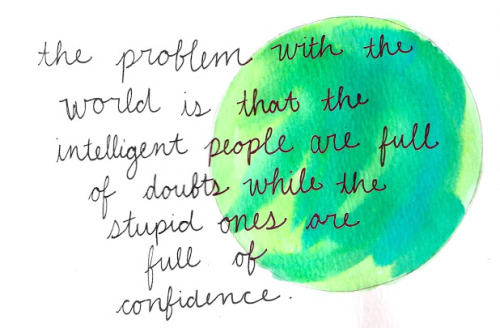 the problem with the
world is that the
intelligent people are full
of doubts while the
stupid ones are
full of
confidence.